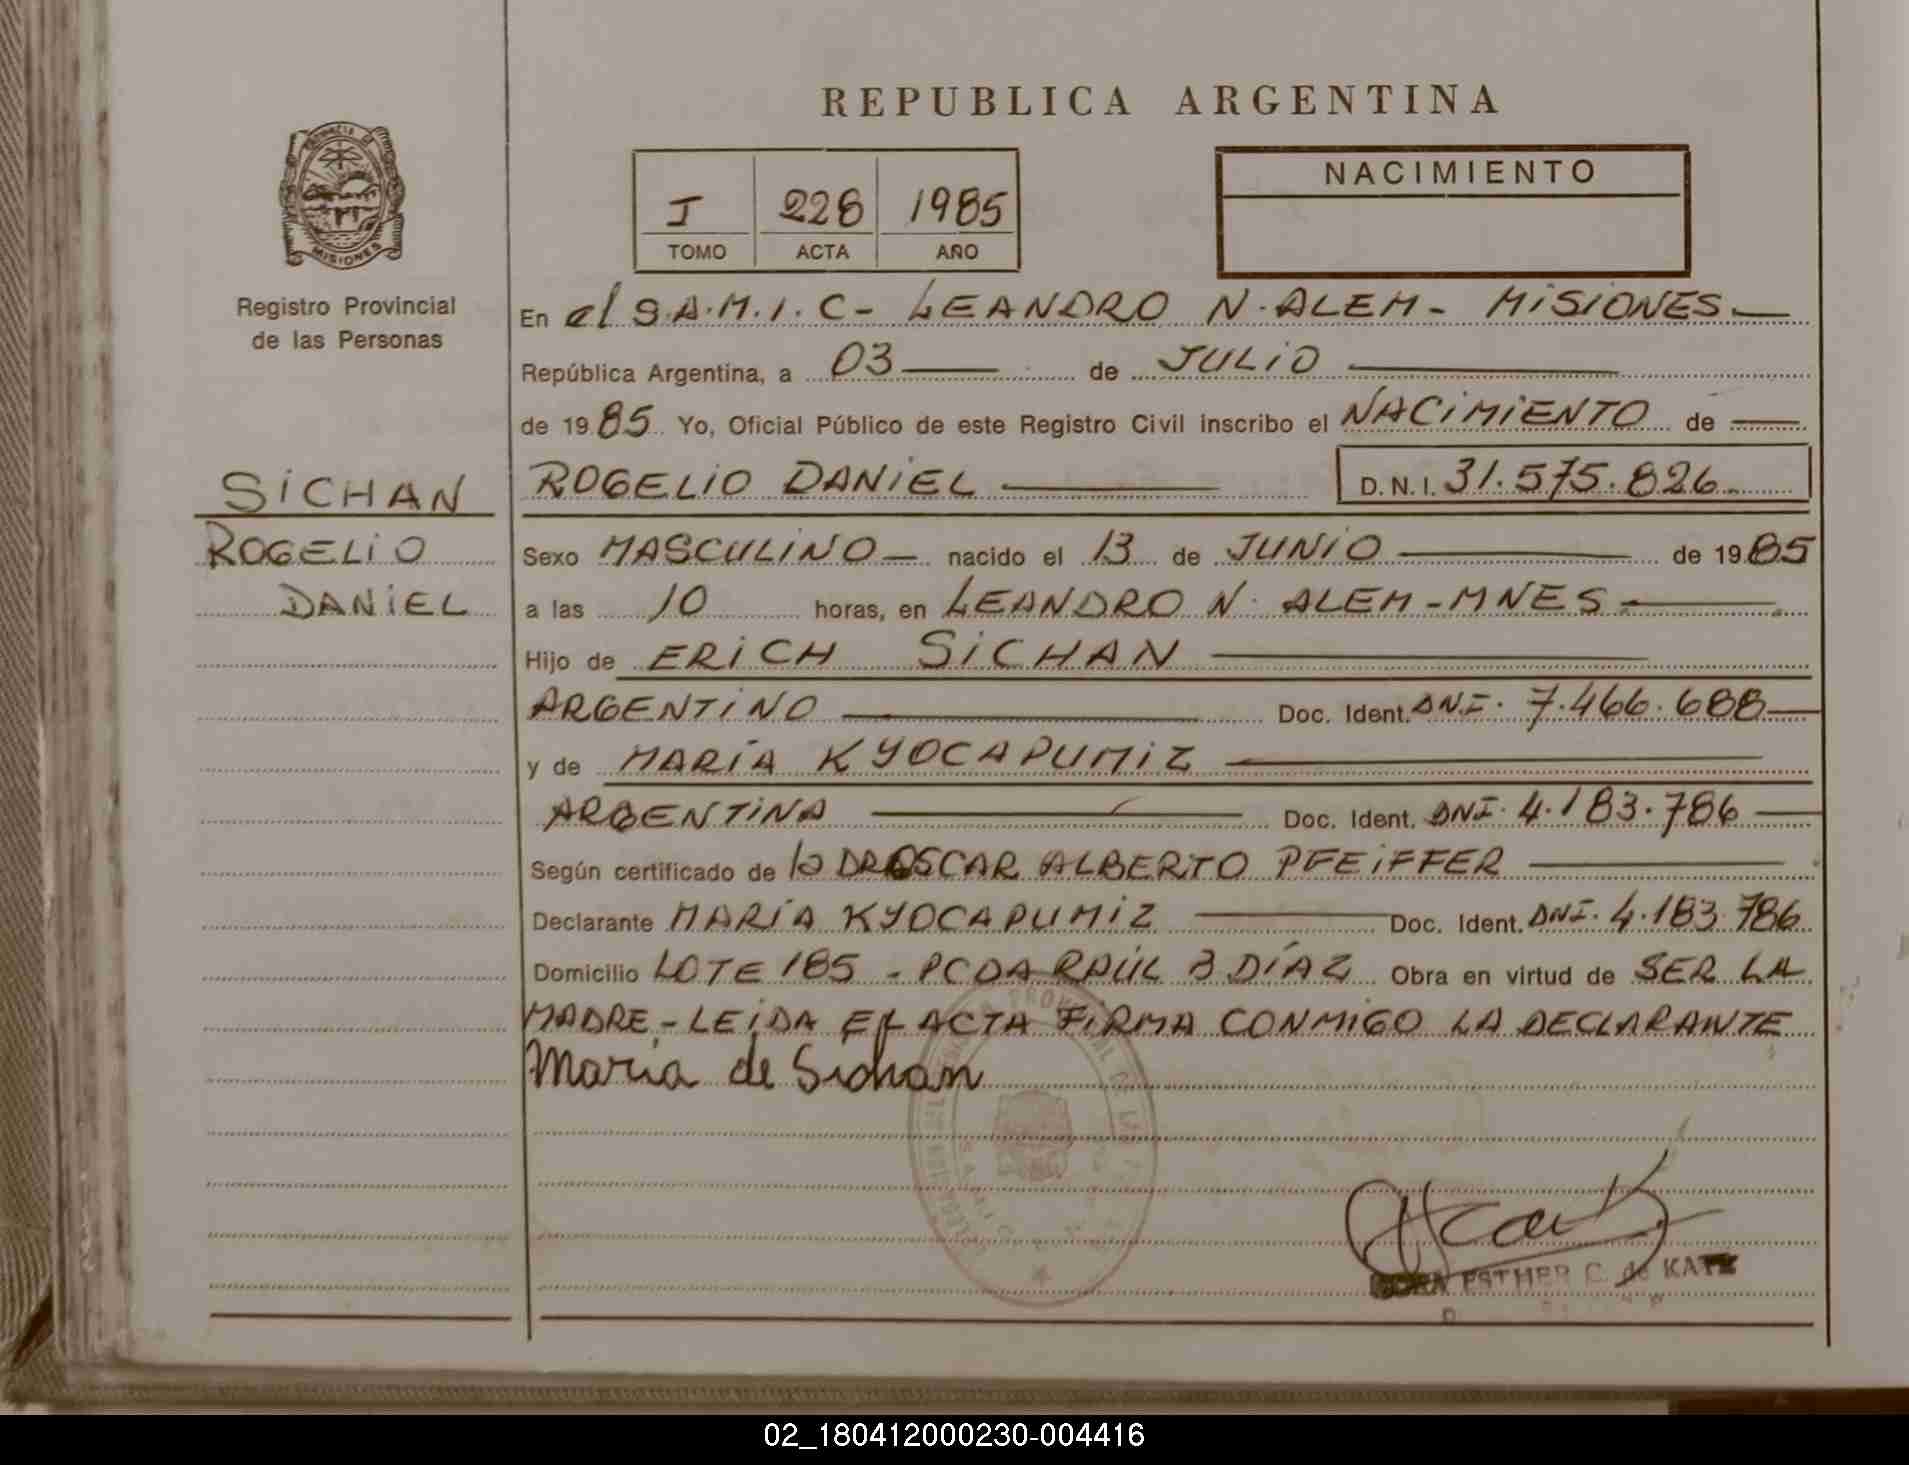 REPUBLICA ARGENTINA
PROVINCIA DE
MISIONES
Registro Provincial
de las Personas
I 228 1985
TOMO ACTA AÑO
NACIMIENTO
En el S.A.M.I.C- LEANDRO N. ALEM- MISIONES-
República Argentina, a 03 de JULIO
de 1985 Yo, Oficial Público de este Registro Civil inscribo el NACIMIENTO de
SICHAN
ROGELIO DANIEL
D.N.I. 31.575.826
ROGELIO
DANIEL
Sexo MASCULINO nacido el 13 de JUNIO de 1985
a las 10 horas, en LEANDRO N. ALEM-MNES
Hijo de ERICH SICHAN
ARGENTINO Doc. Ident. DNI. 7.466.688
y de MARÍA KYOCAPUMIZ
ARGENTINA Doc. Ident. DNI. 4.183.786
Según certificado de la DR OSCAR ALBERTO PFEIFFER
Declarante MARÍA KYOCAPUMIZ Doc. Ident. DNI. 4.183.786
Domicilio LOTE 185 - PCDA RAÚL 3 DÍAZ Obra en virtud de SER LA
MADRE - LEIDA EL ACTA FIRMA CONMIGO LA DECLARANTE
Maria de Sichan
ESTHER C. de KATZ
02_180412000230-004416